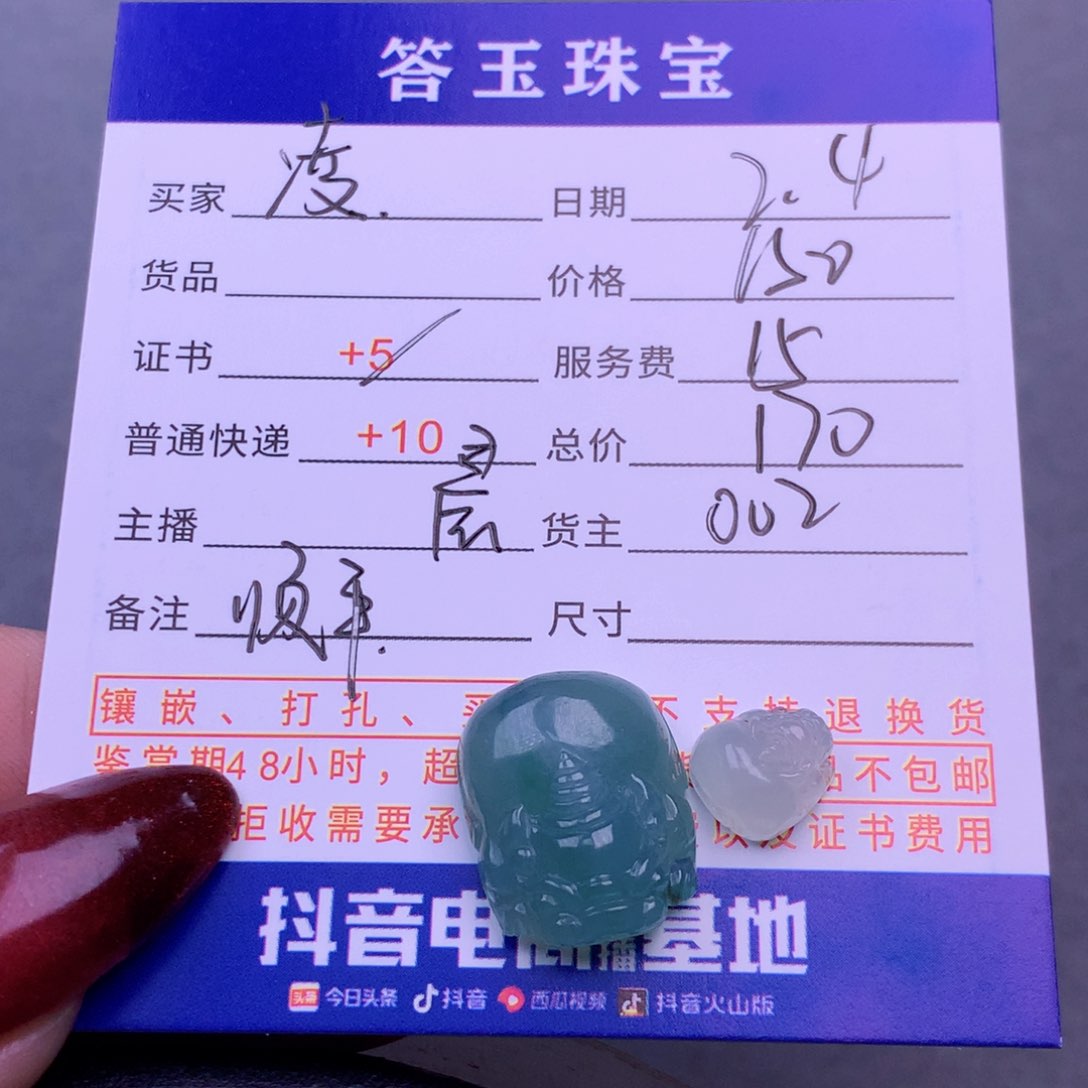 答玉珠宝
买家 度. 日期 2.4
货品 价格 150
证书 +5 服务费 15
普通快递 +10 总价 170
主播 货主 002
备注 顺丰. 尺寸
镶嵌、打孔、 不支持退换货
鉴赏期48小时，超 品不包邮
拒收需要承 以及证书费用
抖音电商 播基地
头条 今日头条 抖音 西瓜视频 抖音火山版